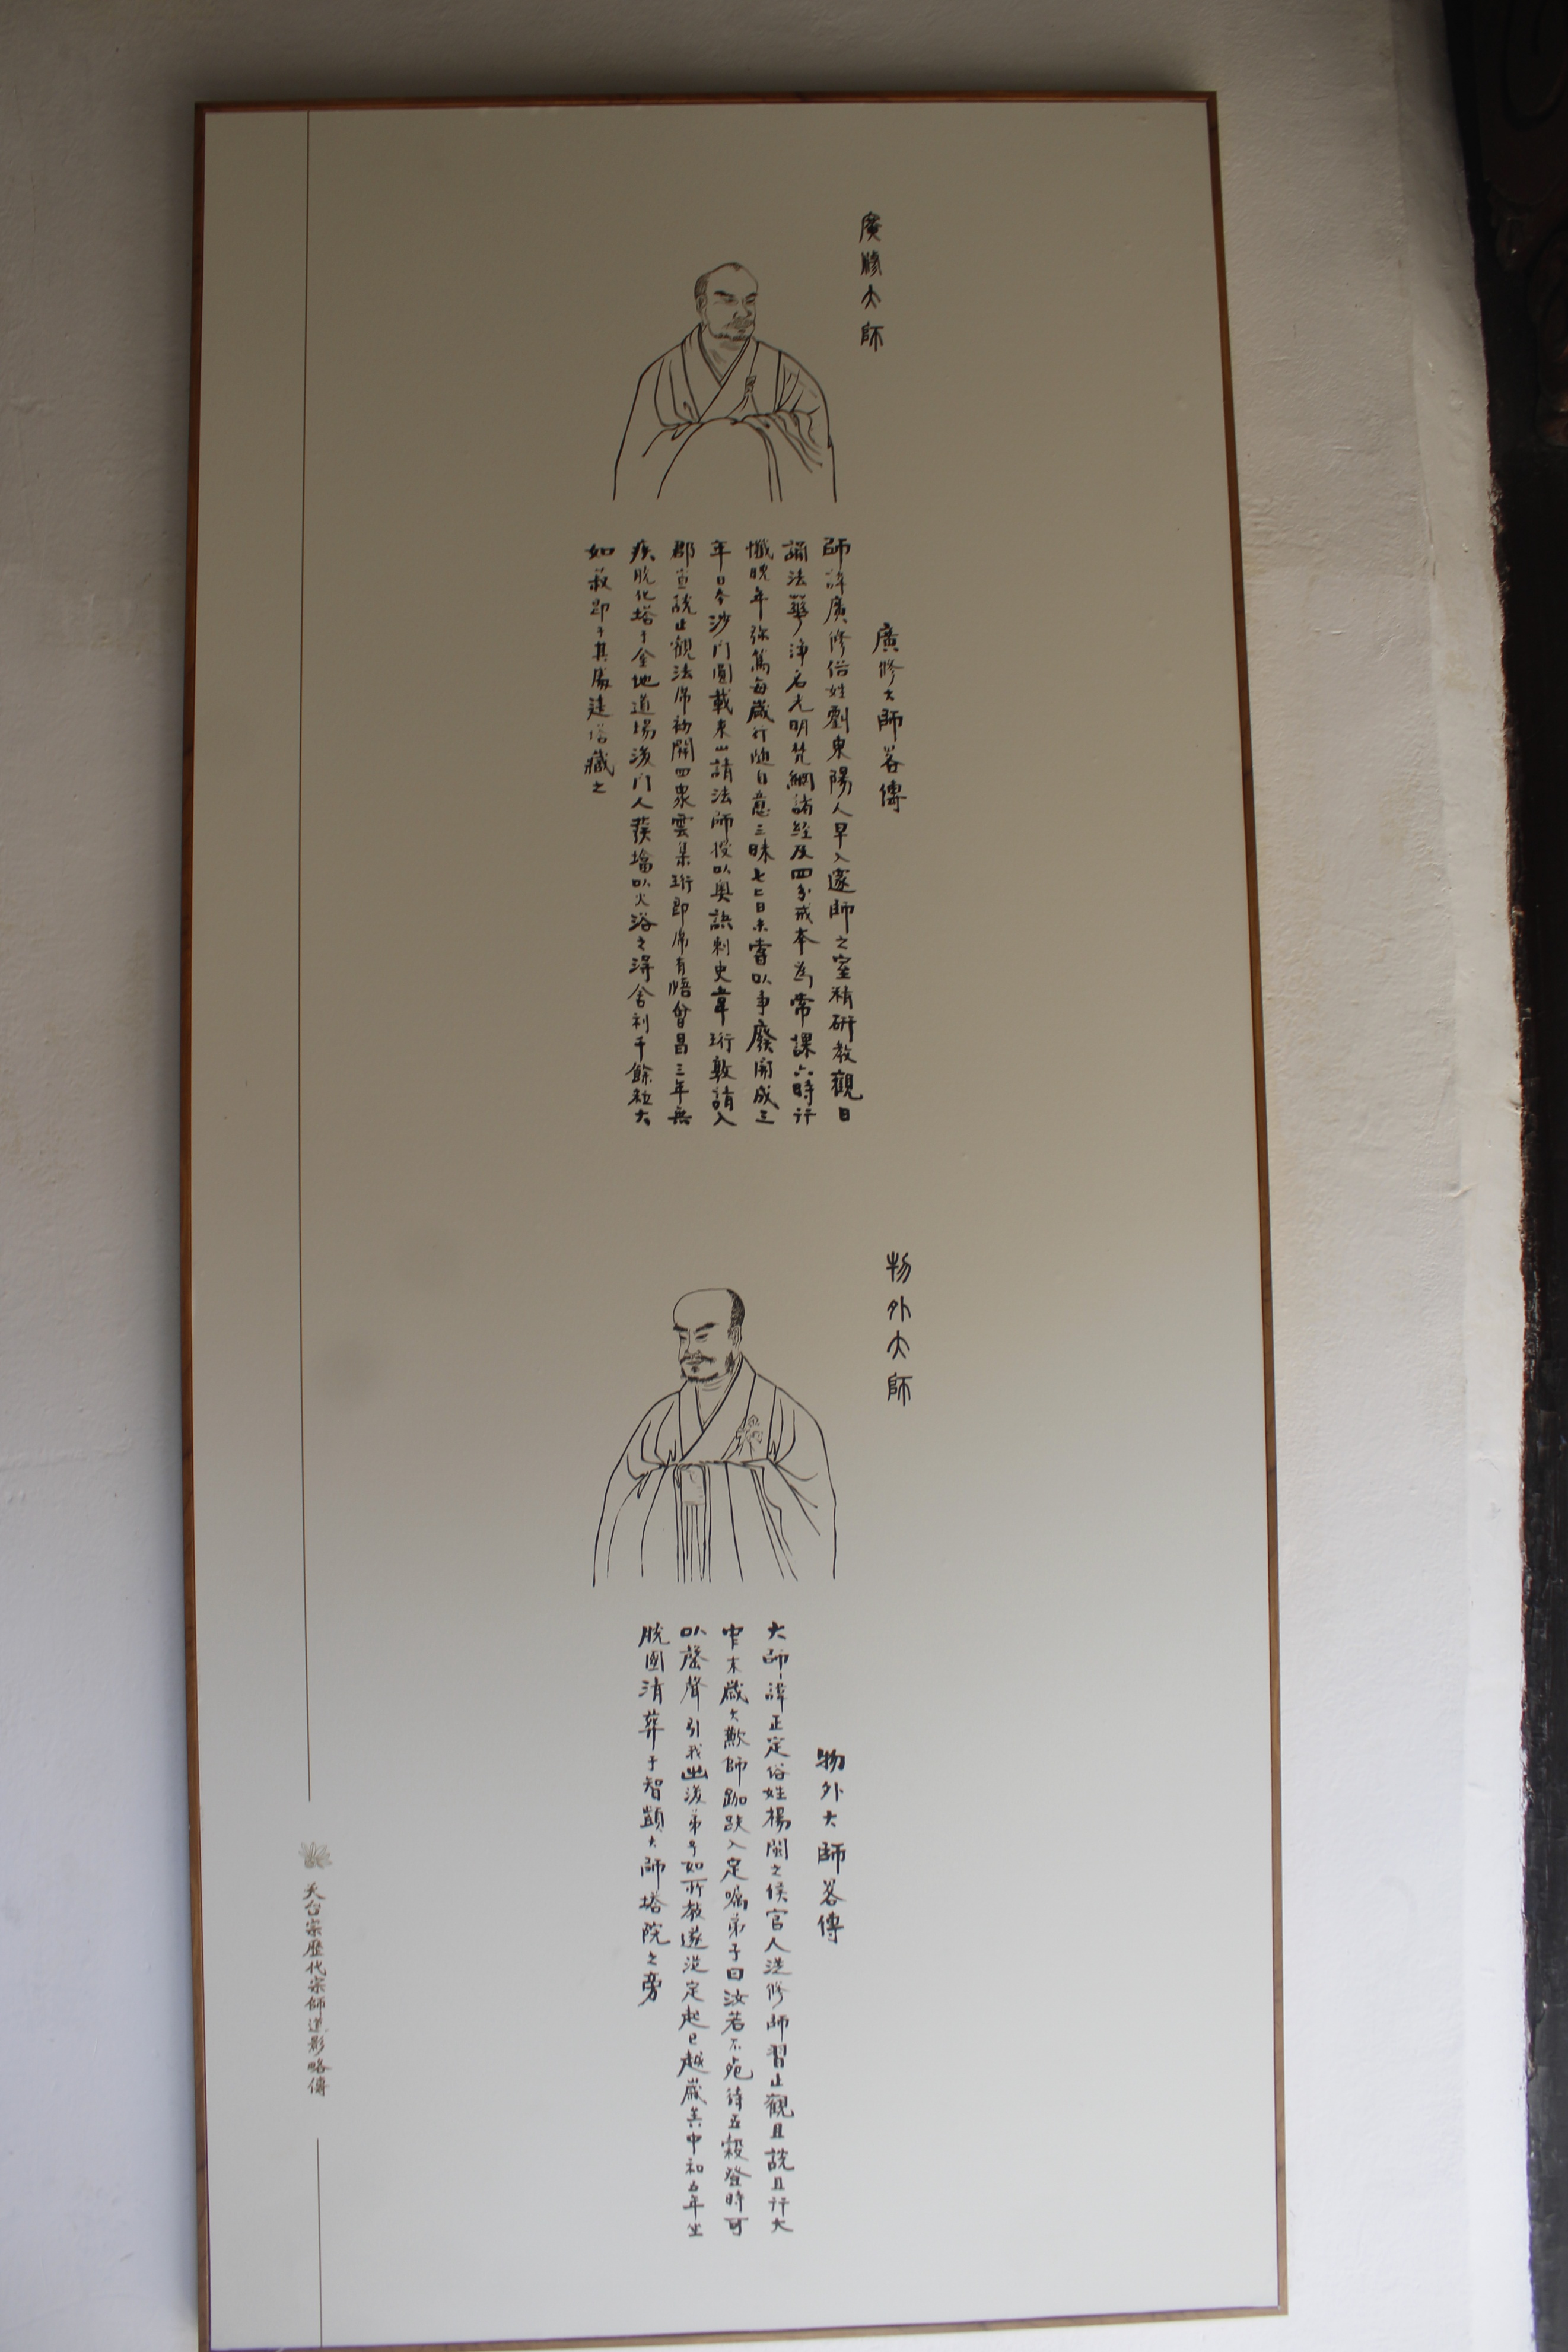 廣修大師
廣修大師畧傳
師諱廣修俗姓劉東陽人早入邃師之室精研教觀日
誦法華淨名光明梵網諸經及四分戒本為常課六時行
懺晚年弥篤每歲行隨自意三昧七七日未嘗以事廢開成三
年日本沙門圓載來山請法師授以奧訣刺史韋珩敦請入
郡宣說止觀法席初開四衆雲集珩即席有悟會昌三年無
疾脫化塔于金地道場後門人發塔以火浴之得舍利千餘粒大
如菽即于其處建塔藏之
物外大師
物外大師畧傳
大師諱正定俗姓楊閩之侯官人從修師習止觀且說且行大
中末歲大歉師跏趺入定嘱弟子曰汝若不死待五穀登時可
以磬聲引我出後弟子如所教遂從定起已越歲矣中和五年坐
脫國清葬于智顗大師塔院之旁
天台宗歷代宗師道影略傳